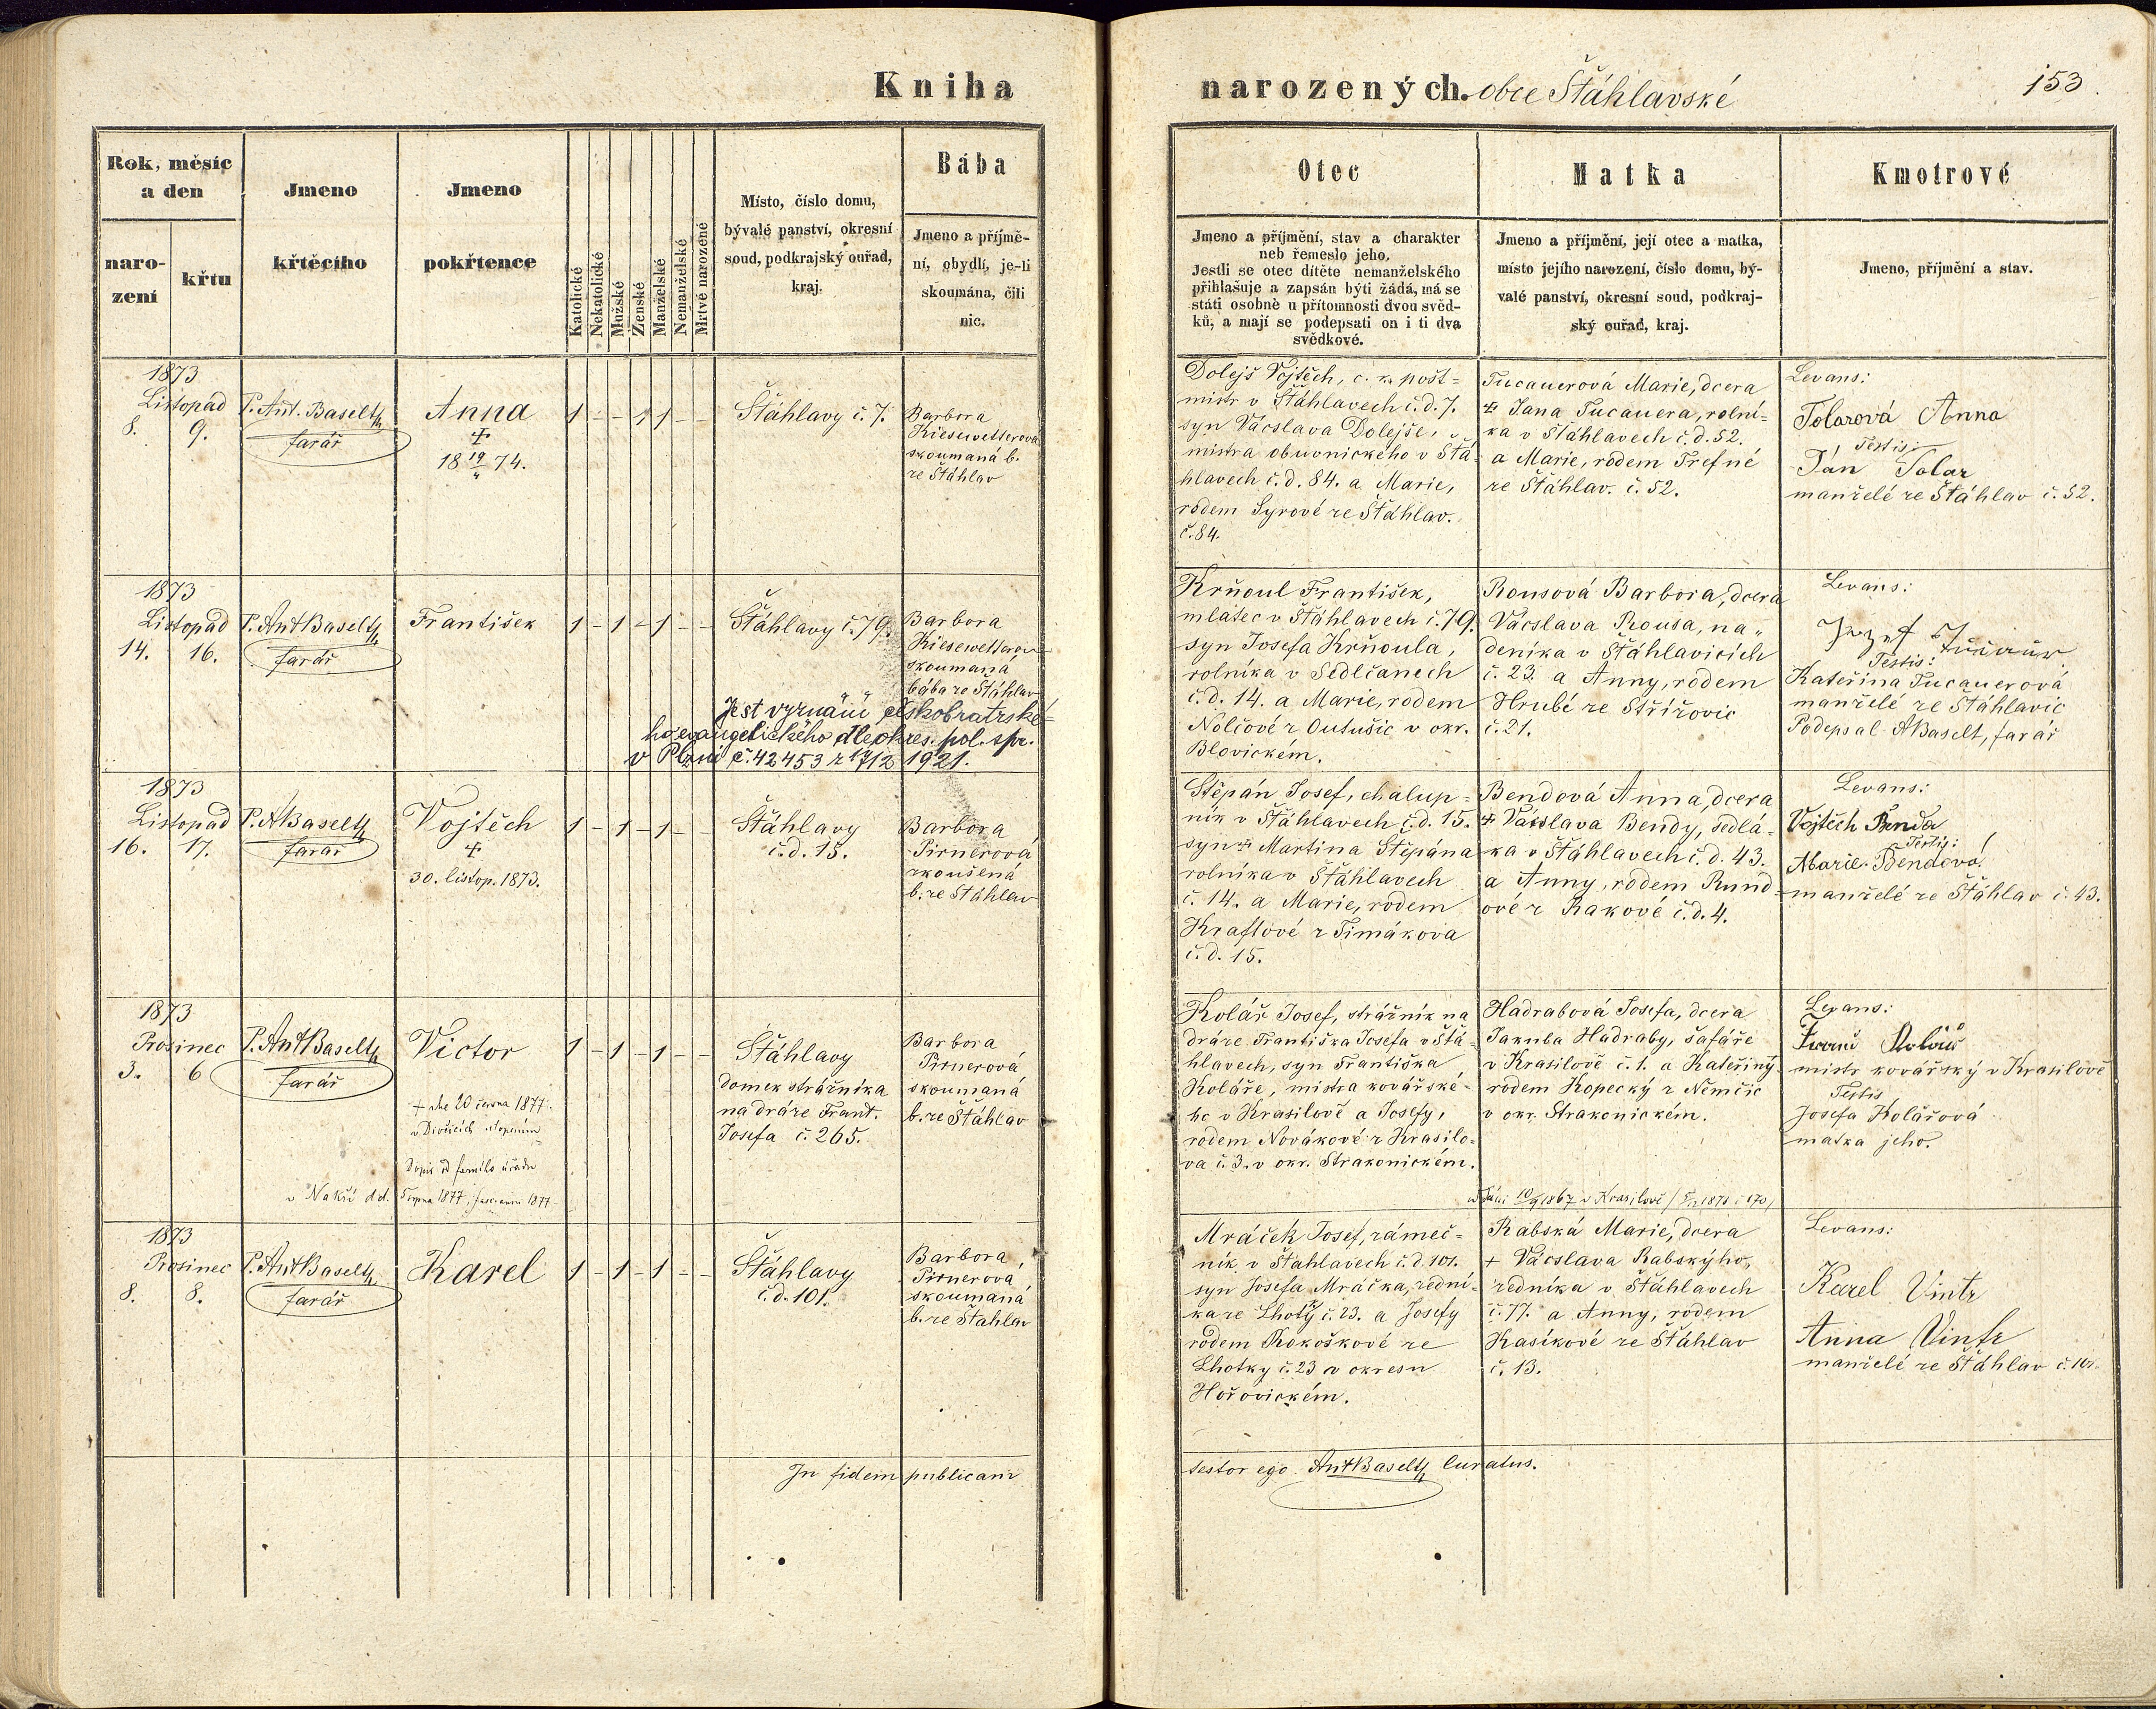 Kniha
narozených. obce Šťáhlavské
153
Rok, měsíc
a den
naro-
zení
křtu
Jmeno
křtěcího
Jmeno
pokřtence
Katolické
Nekatolické
Mužské
Ženské
Manželské
Nemanželské
Mrtvě narozené
Místo, číslo domu,
bývalé panství, okresní
soud, podkrajský ouřad,
kraj.
Bába
Jmeno a příjmě-
ní, obydlí, je-li
skoumána, čili
nic.
Otec
Jmeno a příjmění, stav a charakter
neb řemeslo jeho.
Jestli se otec dítěte nemanželského
přihlašuje a zapsán býti žádá, má se
státi osobně u přítomnosti dvou svěd-
ků, a mají se podepsati on i ti dva
svědkové.
Matka
Jmeno a příjmění, její otec a matka,
místo jejího narození, číslo domu, bý-
valé panství, okresní soud, podkraj-
ský ouřad, kraj.
Kmotrové
Jmeno, příjmění a stav.
1873
Listopad
8. 9.
P. Ant. Baselt
farář
Anna
+
18 19/4 74.
1 - - 1 1 - -
Šťáhlavy č. 7.
Barbora
Kiesewetterová
skoumaná b.
ze Šťáhlav
Dolejš Vojtěch, c. k. pošt=
mistr v Šťáhlavech č. d. 7.
syn Vácslava Dolejše,
mistra obuvnického v Šťá-
hlavech č. d. 84. a Marie,
rodem Syrové ze Šťáhlav.
č. 84.
Tucauerová Marie, dcera
+ Jana Tucauera, rolní=
ka v Šťáhlavech č. d. 52.
a Marie, rodem Trefné
ze Šťáhlav. č. 52.
Levans:
Tolarová Anna
Testis:
Ján Tolar
manželé ze Šťáhlav č. 52.
1873
Listopad
14. 16.
P. Ant Baselt
farář
František
1 - 1 - 1 - -
Šťáhlavy č. 79.
Barbora
Kiesewetterov
skoumaná
bába ze Šťáhlav
Jest vyznání českobratrské-
ho evangelického dle okres. pol. spr.
v Plzni č. 42453 z 17/12 1921.
Krňoul František,
mlatec v Šťáhlavech č. 79.
syn Josefa Krňoula,
rolníka v Sedlčanech
č. d. 14. a Marie, rodem
Nolčové z Outušic v okr.
Blovickém.
Rousová Barbora, dcera
Vácslava Rousa, na„
deníka v Šťáhlavicích
č. 23. a Anny, rodem
Hrubé ze Střížovic
č. 21.
Levans:
Jozef
Testis:
Kateřina Tucauerová
manželé ze Šťáhlavic
Podepsal ABaselt, farář
1873
Listopad
16. 17.
P. ABaselt
farář
Vojtěch
+
30. listop. 1873.
1 - 1 - 1 - -
Šťáhlavy
č. d. 15.
Barbora
Pirnerová
zkoušená
b. ze Šťáhlav
Štěpán Josef, chalup=
ník v Šťáhlavech č. d. 15.
syn + Martina Štěpána
rolníka v Šťáhlavech
č. 14. a Marie, rodem
Kraftové z Timákova
č. d. 15.
Bendová Anna, dcera
+ Vácslava Bendy, sedlá-
ka v Šťáhlavech č. d. 43.
a Anny, rodem Rund=
ové z Rakové č. d. 4.
Levans:
Vojtěch Benda
Testis:
Marie Bendová
manželé ze Šťáhlav č. 43.
1873
Prosinec
3. 6
P. Ant Baselt
farář
Victor
+ dne 20 června 1877.
v Divčicích utopením
Dopis od farního úřadu
v Nakří dd. Srpna 1877. 1877
1 - 1 - 1 - -
Šťáhlavy
domek strážníka
na dráze Frant.
Josefa č. 265.
Barbora
Pirnerová
skoumaná
b. ze Šťáhlav
Kolář Josef, strážník na
dráze Františka Josefa v Šťá-
hlavech, syn Františka
Koláře, mistra kovářské-
ho v Krasilově a Josefy,
rodem Novákové z Krasilo-
va č. 3. v okr. Strakonickém.
Hadrabová Josefa, dcera
Jakuba Hadraby, šafáře
v Krasilově č. 1. a Kateřiny
rodem Kopecký z Němčic
v okr. Strakonickém.
10/9 1867 v Krasilově
Levans:
Franc Kolář
mistr kovářský v Krasilově
Testis
Josefa Kolářová
matka jeho.
1873
Prosinec
8. 8.
P. Ant Baselt
farář
Karel
1 - 1 - 1 - -
Šťáhlavy
č. d. 101.
Barbora
Pirnerová
skoumaná
b. ze Šťáhlav
Mráček Josef, zámeč-
ník v Šťáhlavech č. d. 101.
syn Josefa Mráčka, zední-
ka ze Lhoty č. 23. a Josefy
rodem Kokoškové ze
Lhotky č. 23 v okresu
Hořovickém.
Rabská Marie, dcera
+ Vácslava Rabskýho,
zedníka v Šťáhlavech
č. 77. a Anny, rodem
Kasíkové ze Šťáhlav
č. 13.
Levans:
Karel Vintr
Anna Vintr
manželé ze Šťáhlav č. 101.
In fidem publicam
testor ego Ant Baselt Curatus.